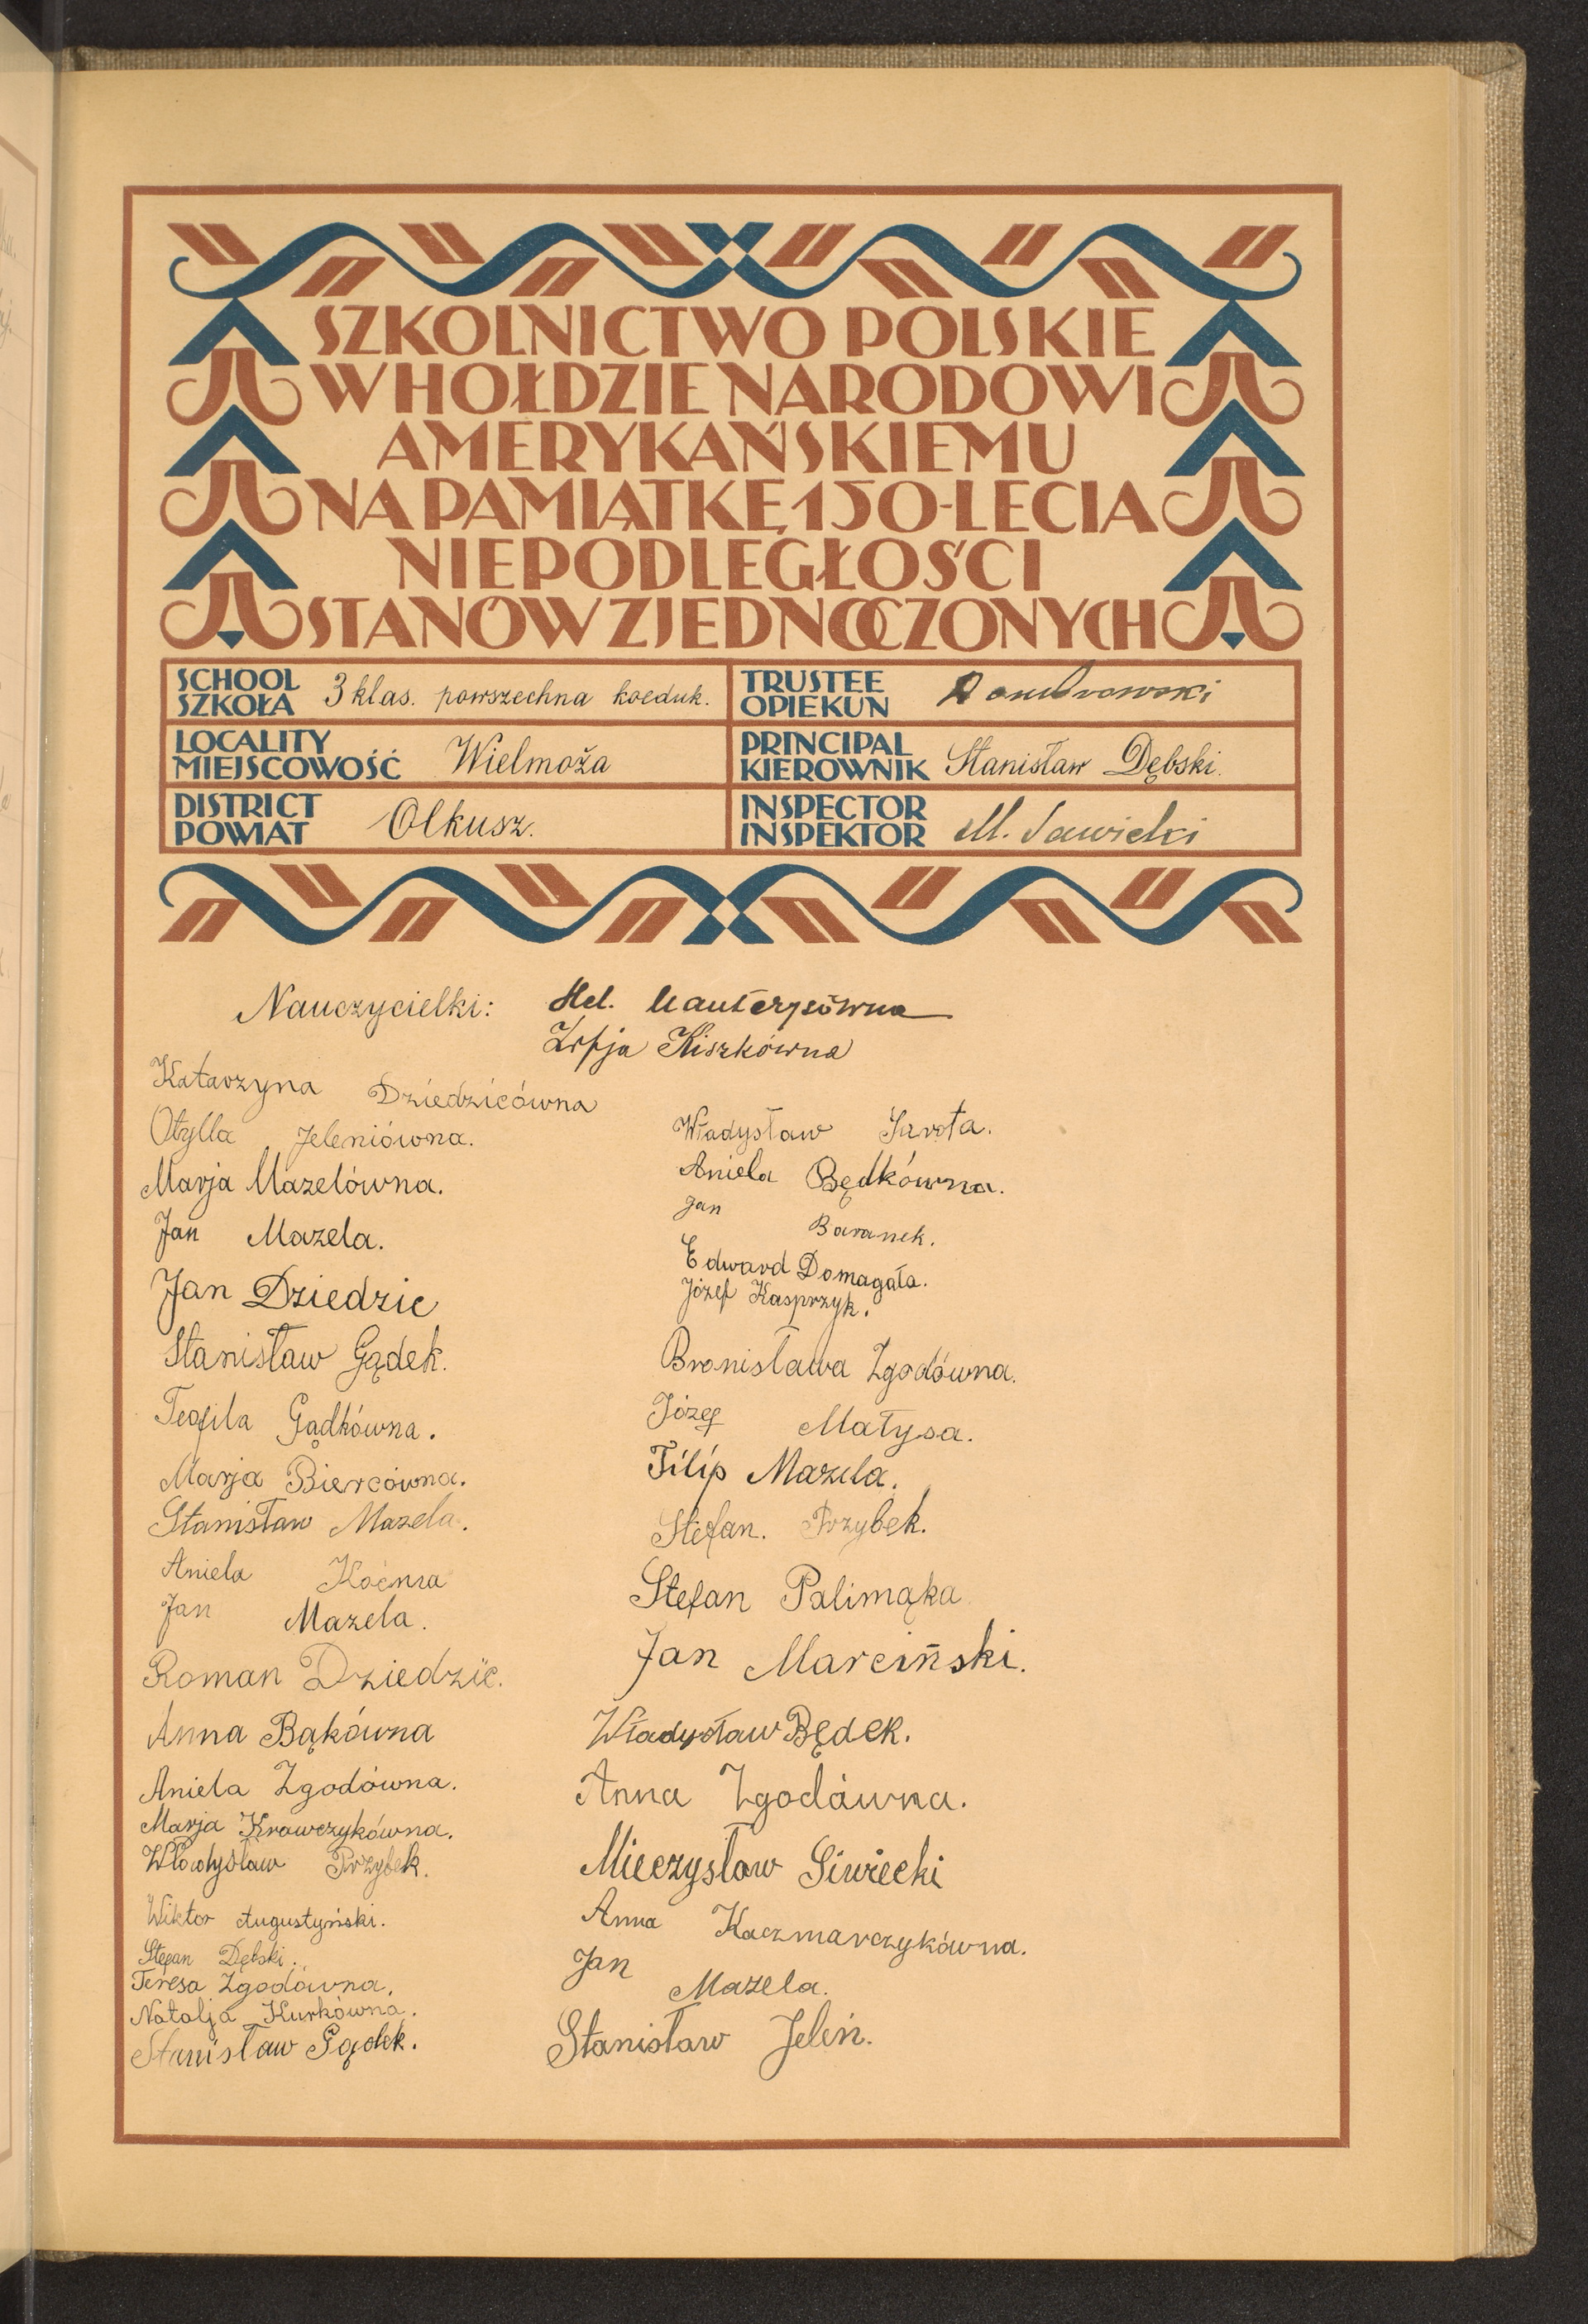 SZKOLNICTWO POLSKIE
W HOŁDZIE NARODOWI
AMERYKAŃSKIEMU
NA PAMIĄTKĘ 150-LECIA
NIEPODLEGŁOŚCI
STANÓW ZJEDNOCZONYCH
SCHOOL
SZKOŁA 3 klas. powszechna koeduk.
TRUSTEE
OPIEKUN Dombrowski
LOCALITY
MIEJSCOWOŚĆ Wielmoża
PRINCIPAL
KIEROWNIK Stanisław Dębski.
DISTRICT
POWIAT Olkusz.
INSPECTOR
INSPEKTOR M. Sawicki
Nauczycielki: Hel.
Zofja Kiszkówna
Katarzyna Dziedzicówna
Otylla Jeleniówna.
Marja Mazelówna.
Jan Mazela.
Jan Dziedzic
Stanisław Gądek.
Teofila Gądkówna.
Marja Biercówna.
Stanisław Mazela.
Aniela Koćma
Jan Mazela.
Roman Dziedzic.
Anna Bąkówna
Aniela Zgodówna.
Marja Krawczykówna.
Władysław Przybek.
Wiktor Augustyński.
Stefan Dębski.
Teresa Zgodówna.
Natalja Kurkówna.
Stanisław Gądek.
Władysław Sarota.
Aniela Będkówna.
Jan Baranek.
Edward Domagała.
Józef Kasprzyk.
Bronisława Zgodówna.
Józef Małysa.
Filip Mazela.
Stefan. Przybek.
Stefan Palimąka
Jan Marciński.
Władysław Będek.
Anna Zgodówna.
Mieczysław Siwiecki
Anna Kaczmarczykówna.
Jan Mazela.
Stanisław Jeleń.